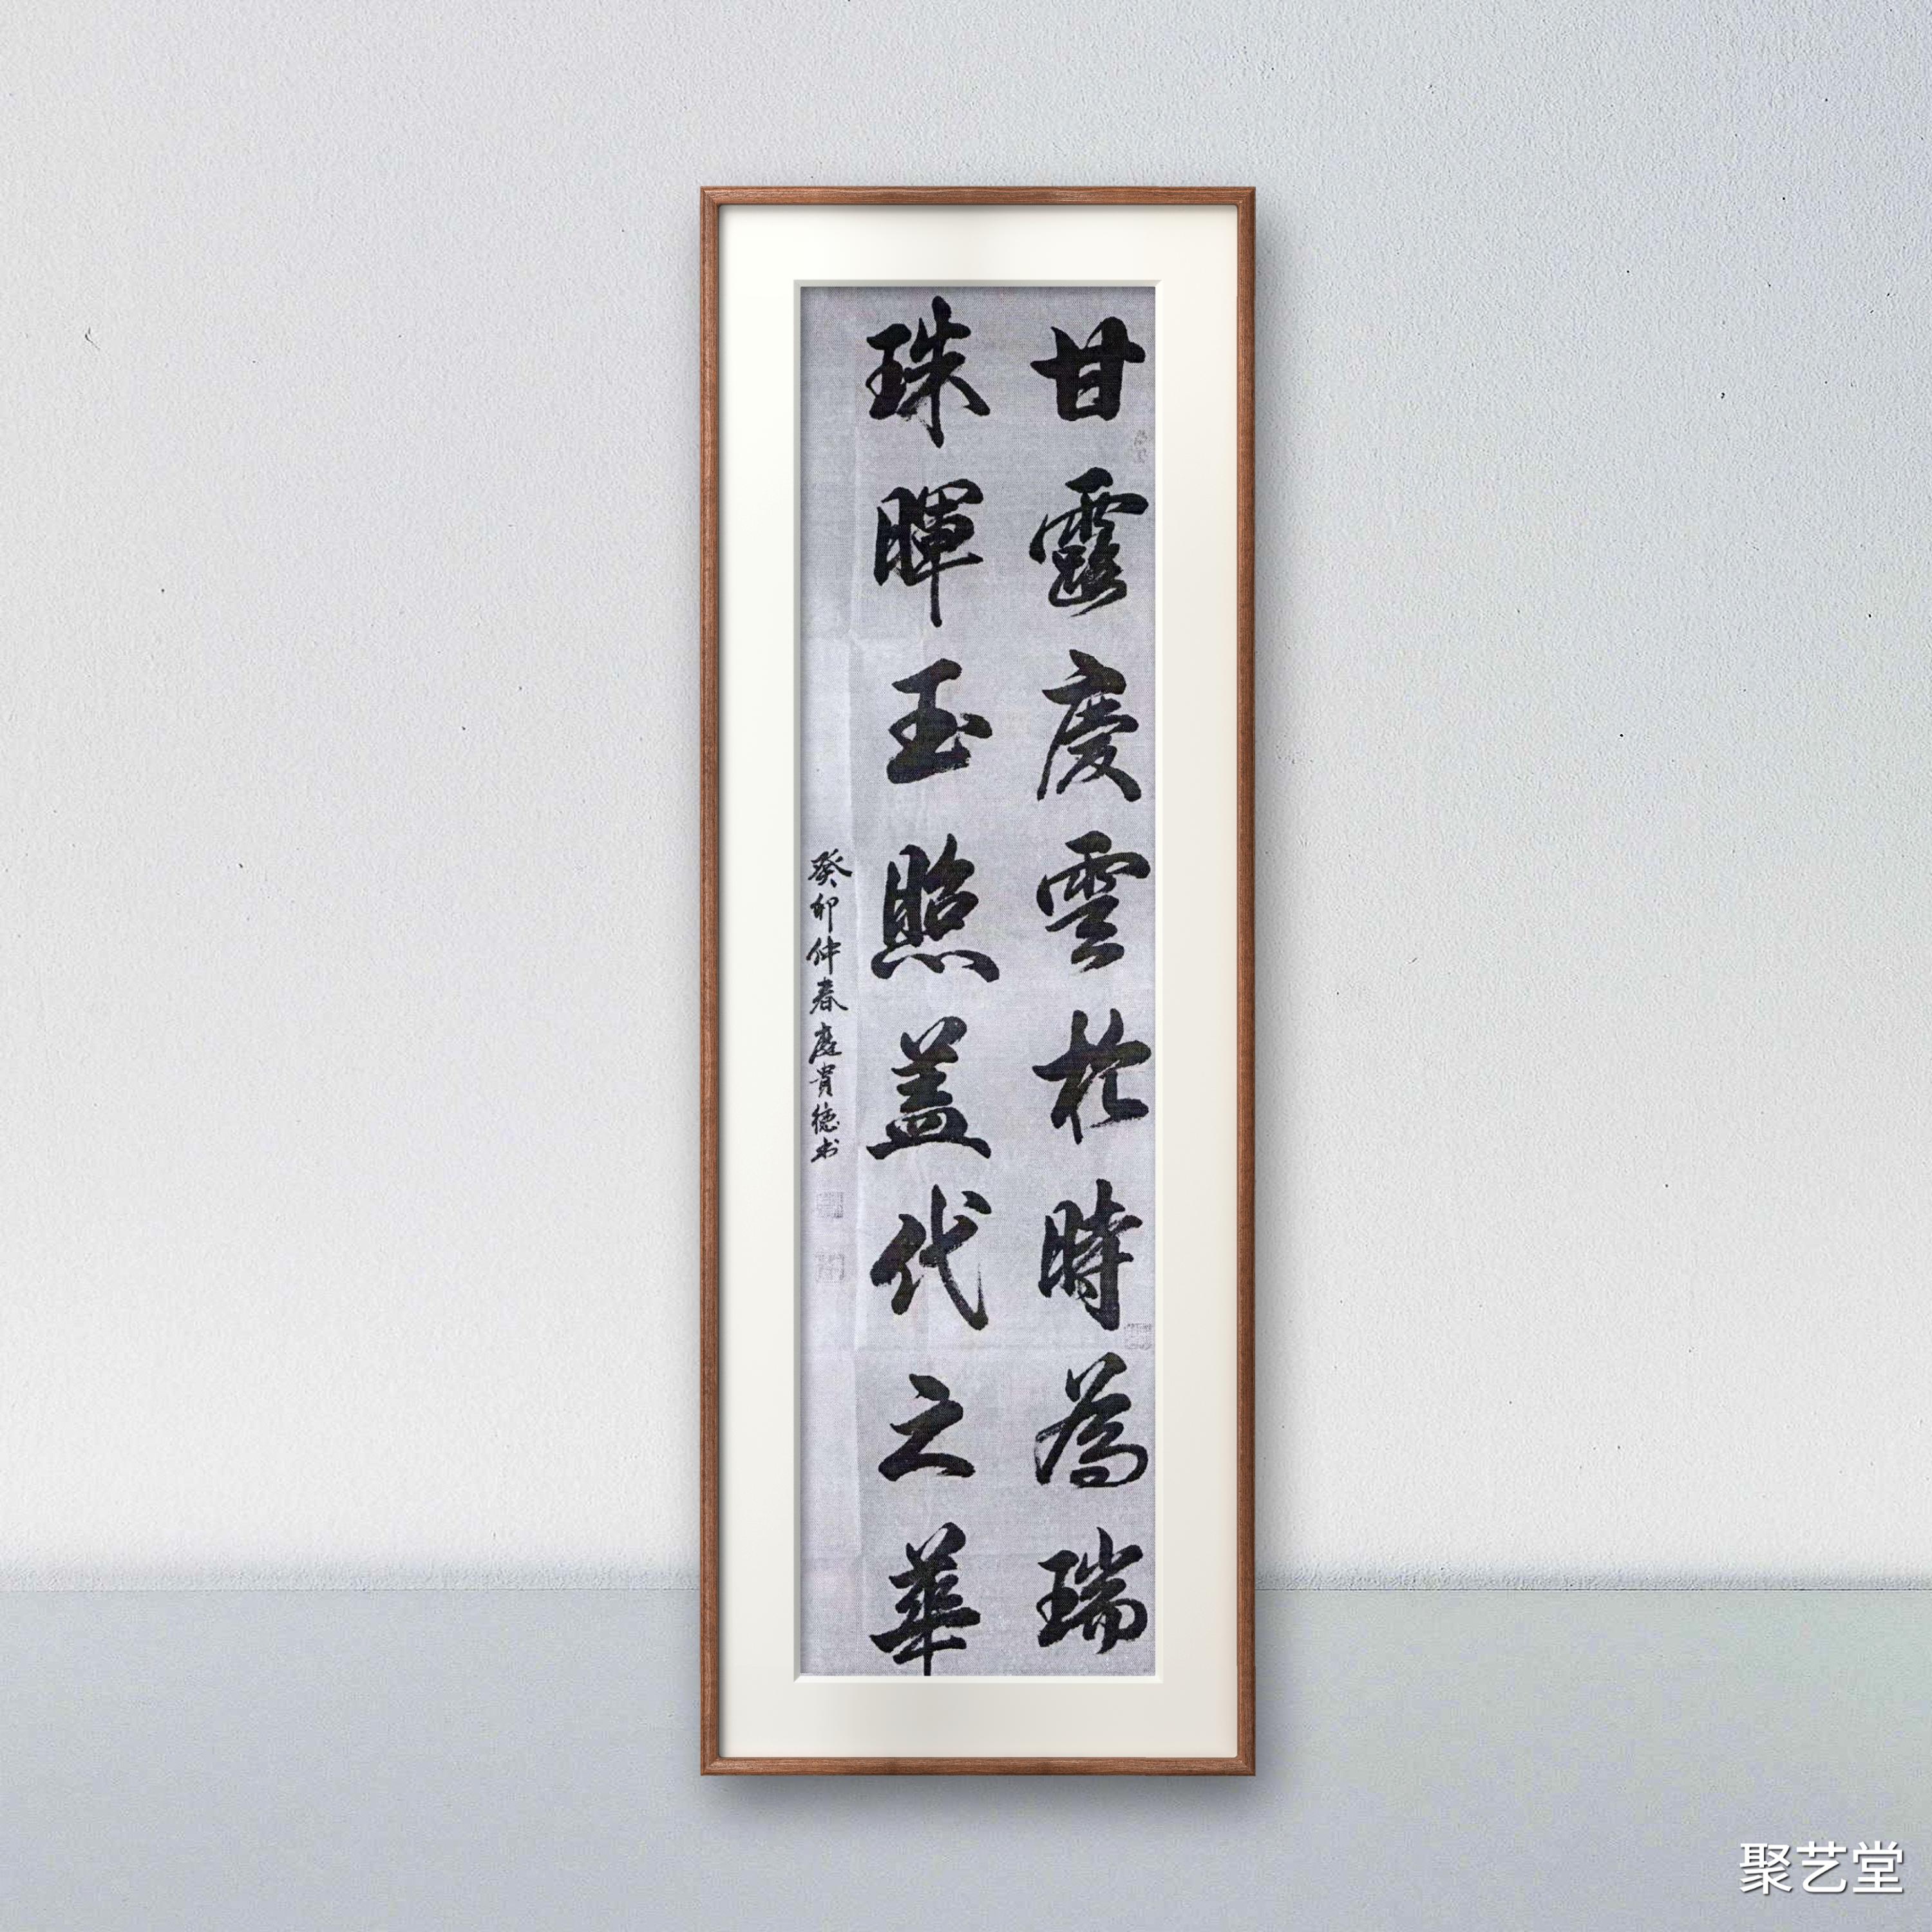 甘露慶雲於時為瑞
珠暉玉照蓋代之華
癸卯仲春庭貴德书
聚艺堂